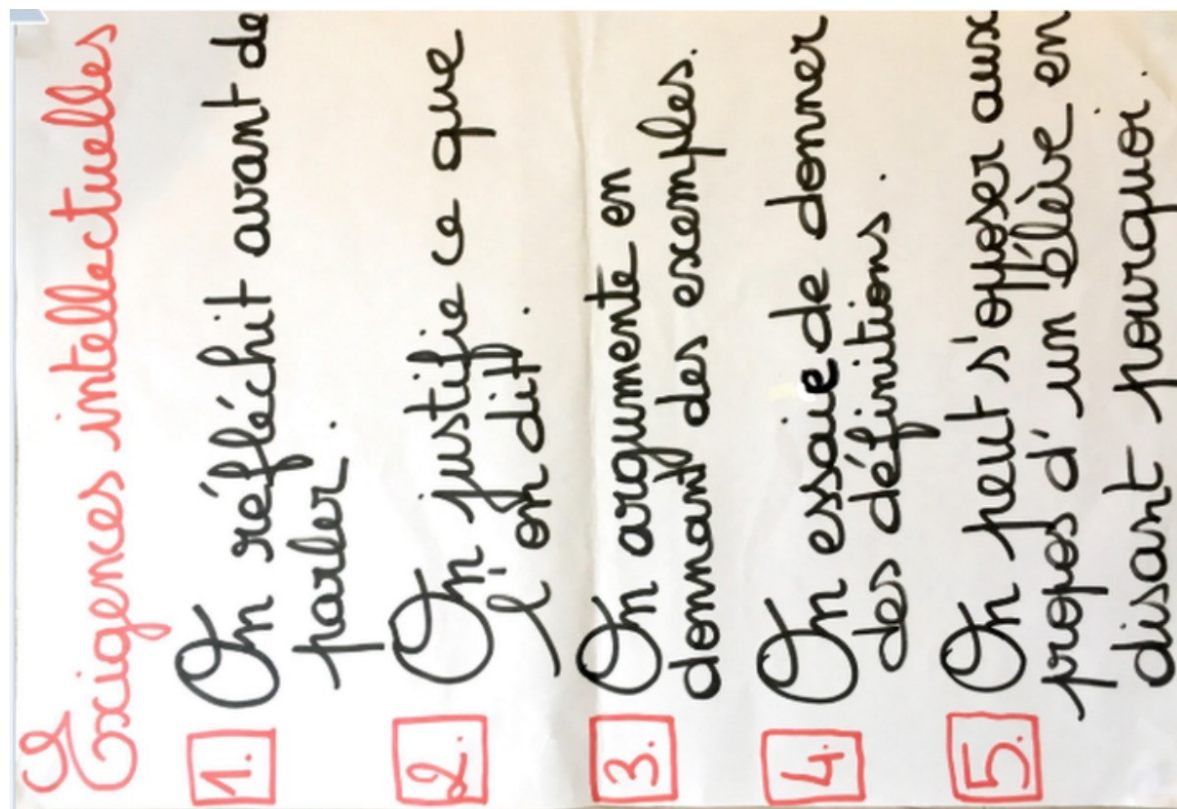 Exigences intellectuelles
1. On réfléchit avant de
parler.
2. On justifie ce que
l'on dit.
3. On argumente en
donnant des exemples.
4. On essaie de donner
des définitions.
5. On peut s'opposer aux
propos d'un élève en
disant pourquoi.